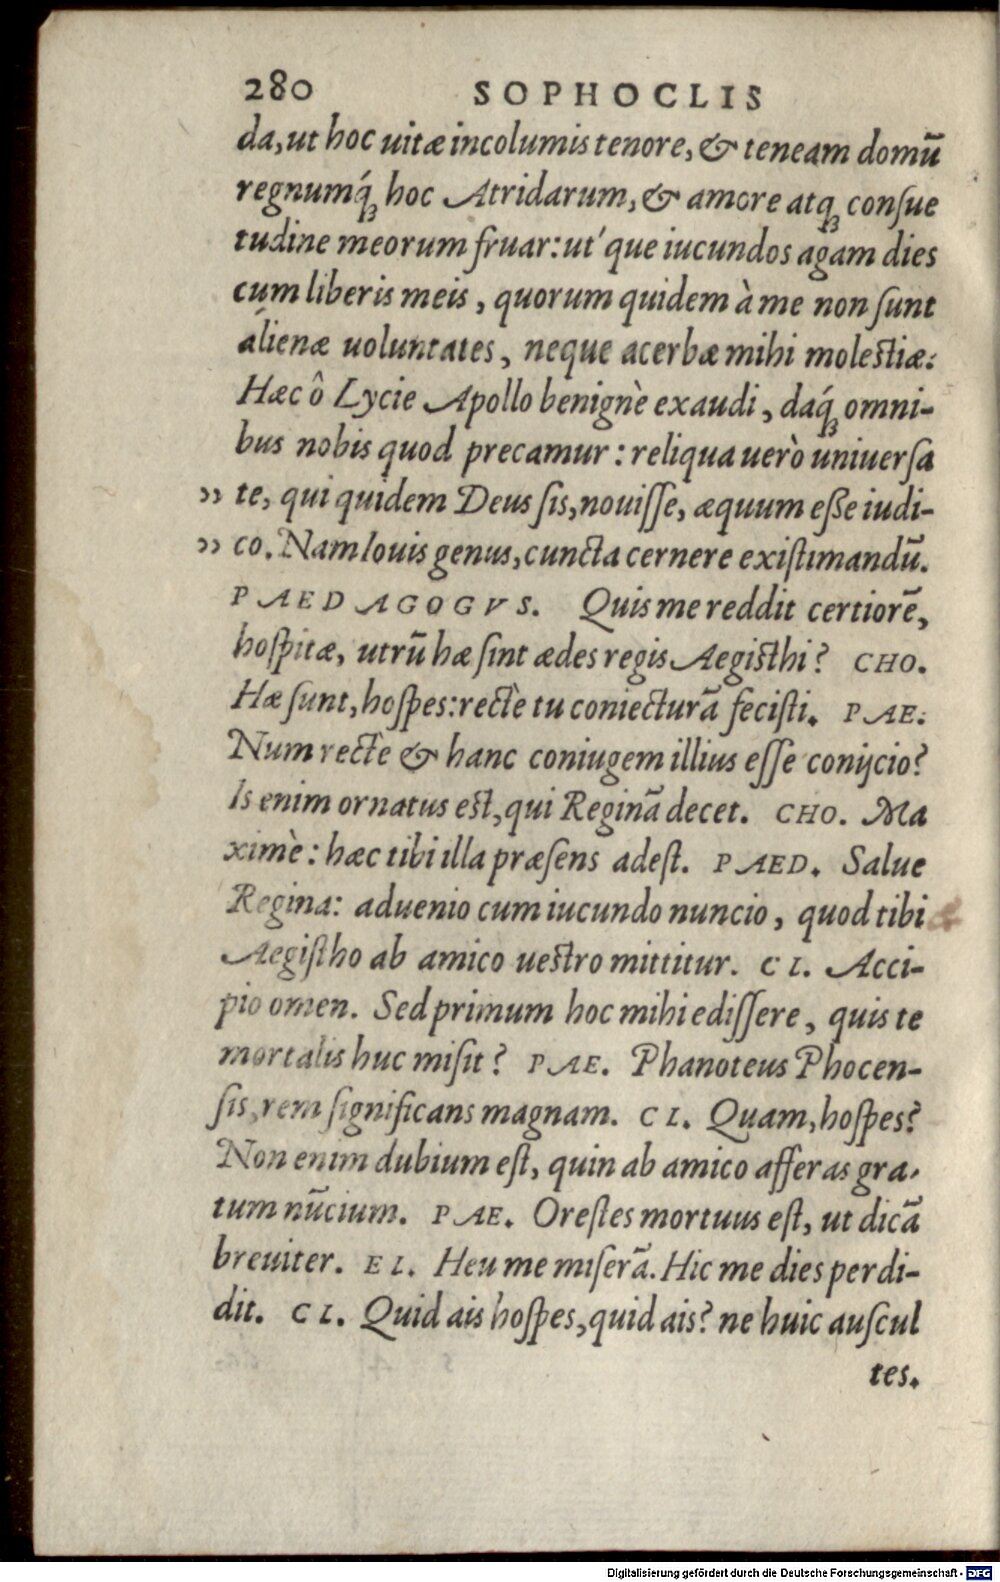 280 SOPHOCLIS
da, ut hoc uitæ incolumis tenore, & teneam domū
regnumq́ꝫ hoc Atridarum, & amore atqꝫ conſue
tudine meorum fruar: ut'que iucundos agam dies
cum liberis meis, quorum quidem à me non ſunt
álienæ uoluntates, neque acerbæ mihi moleſtiæ:
Hæc ô Lycie Apollo benignè exaudi, daq́ꝫ omni-
bus nobis quod precamur: reliqua uerò uniuerſa
„ te, qui quidem Deus ſis, nouiſſe, æquum eſße iudi-
„ co. Nam Iouis genus, cuncta cernere exiſtimandū.
PAEDAGOGVS. Quis me reddit certiorē,
hoſpitæ, utrū hæ ſint ædes regis Aegiſthi? CHO.
Hæ ſunt, hoſpes: rectè tu coniecturā feciſti. PAE.
Num rectè & hanc coniugem illius eſſe conijcio?
Is enim ornatus eſt, qui Reginā decet. CHO. Ma
ximè: hæc tibi illa præſens adeſt. PAED. Salue
Regina: aduenio cum iucundo nuncio, quod tibi
Aegiſtho ab amico ueſtro mittitur. CI. Acci-
pio omen. Sed primum hoc mihi ediſſere, quis te
mortalis huc miſit? PAE. Phanoteus Phocen-
ſis, rem ſignificans magnam. CI. Quam, hoſpes?
Non enim dubium eſt, quin ab amico afferas gra-
tum nūcium. PAE. Oreſtes mortuus eſt, ut dicā
breuiter. EI. Heu me miſerā. Hic me dies perdi-
dit. CI. Quid ais hoſpes, quid ais? ne huic auſcul
tes.
Digitalisierung gefördert durch die Deutsche Forschungsgemeinschaft - DFG